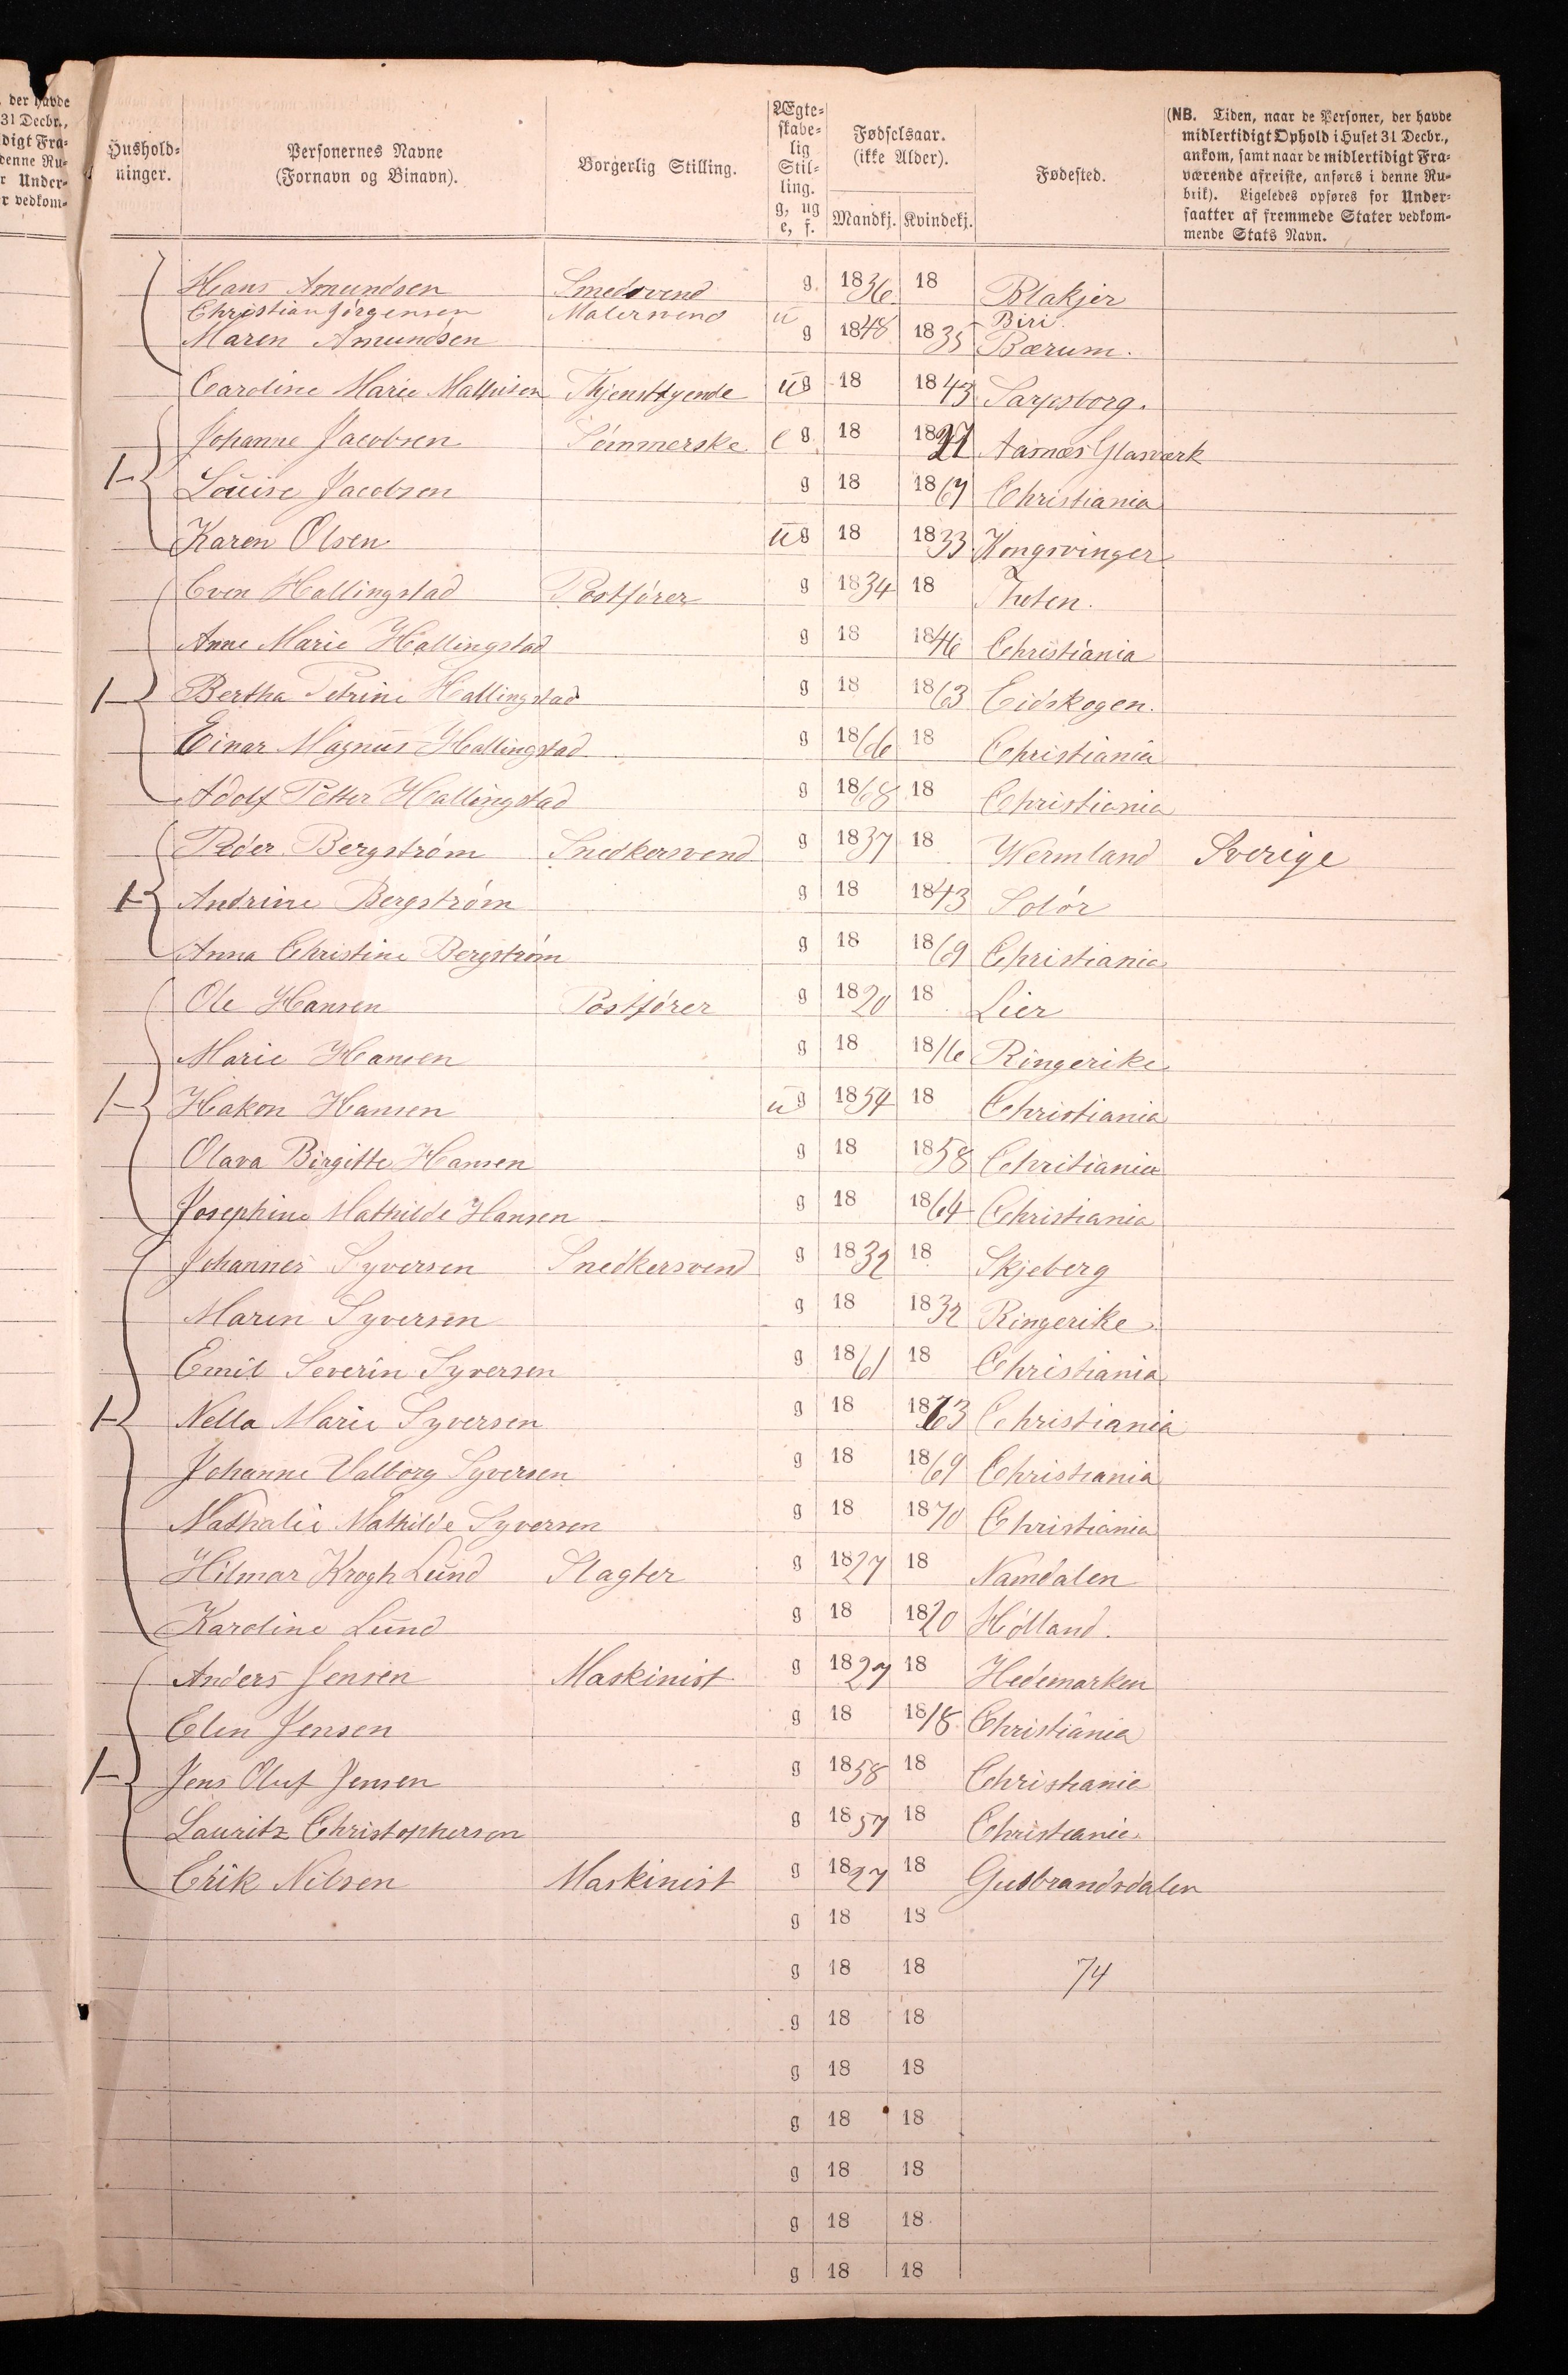 der havde
31 Decbr.,
digt Fra-
denne Ru-
r Under-
r vedkom-
Hushold-
ninger.
Personernes Navne
(Fornavn og Binavn).
Borgerlig Stilling.
Ægte-
skabe-
lig
Stil-
ling.
g, ug
e, f.
Fødselsaar.
(ikke Alder).
Mandkj. Kvindekj.
Fødested.
(NB. Tiden, naar de Personer, der havde
midlertidigt Ophold i Huset 31 Decbr.,
ankom, samt naar de midlertidigt Fra-
værende afreiste, anføres i denne Ru-
brik). Ligeledes opføres for Under-
saatter af fremmede Stater vedkom-
mende Stats Navn.
Hans Amundsen Smedsvend g. 1836 18 Blakjer
Christian Jörgensen Malersvend u 1848 Biri.
Maren Amundsen g 1835 Bærum.
Caroline Marie Mathisen Thjenstgyende ug 18 1843 Sarpsborg.
Johanne Jacobsen Sömmerske e g. 18 1827 Aasnæs Glasværk
Louise Jacobsen g 18 1867 Christiania
Karen Olsen ug 18 1833 Kongsvinger
Even Hallingstad Postförer g 1834 18 Thoten.
Anne Marie Hallingstad g 18 1846 Christiania
1 Bertha Petrine Hallingstad g 18 1863 Eidskogen.
Einar Magnus Hallingstad g 1866 18 Christiania
Adolf Petter Hallingstad g 1868 18 Christiania
Peder Bergström Snedkersvend g 1837 18 Wermland Sverige
1 Andrine Bergström g 18 1843 Solör
Anna Christine Bergström g 18 1869 Christiania
Ole Hansen Postförer g 1820 18 Lier
Marie Hansen g 18 1816 Ringerike
1 Hakon Hansen ug 1854 18 Christiania
Olava Birgitte Hansen g 18 1858 Chritiania
Josephine Mathilde Hansen g 18 1864 Christiania
Johannes Syversen Snedkersvend g 1832 18 Skjeberg
Maren Syversen g 18 1832 Ringerike.
Emil Severin Syversen g 1861 18 Christiania
1 Nella Marie Syversen g 18 1863 Christiania
Johanne Valborg Syversen g 18 1869 Christiania
Nathalie Mathilde Syversen g 18 1870 Christiania
Hilmar Krogh Lund Slagter g 1827 18 Namdalen
Karoline Lund g 18 1820 Hölland.
Anders Jensen Maskinist g 1827 18 Hedemarken
Elen Jensen g 18 1818 Christiania
1 Jens Oluf Jensen g 1858 18 Christiania
Lauritz Christophersen g 1857 18 Christiania
Erik Nilsen Maskinist g 1827 18 Gudbrandsdalen
g 18 18
g 18 18 74
g 18 18
g 18 18
g 18 18
g 18 18
g 18 18
g 18 18